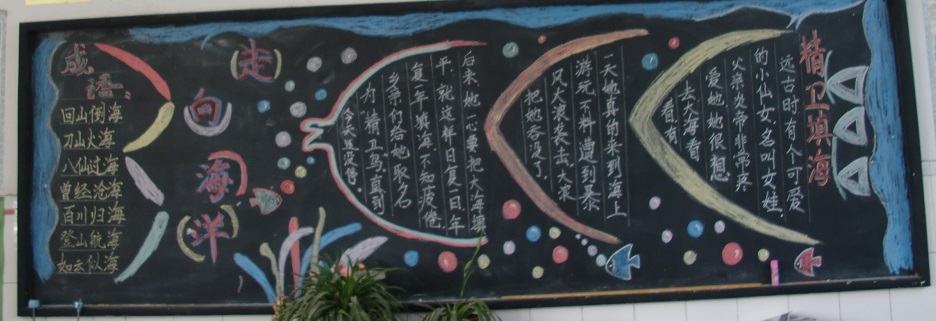 精卫填海
远古时有个可爱
的小仙女名叫女娃
父亲炎帝非常疼
爱她她很想
去大海看
看有
一天她真的来到海上
游玩不料遭到暴
风大浪袭击大浪
把她吞没了
后来她一心要把大海填
平就这样日复一日年
复一年填海不知疲倦
乡亲们给她取名
为精卫鸟直到
今天还没停
走
向
海
洋
成
语
回山倒海
刀山火海
八仙过海
曾经沧海
百川归海
登山航海
如云似海